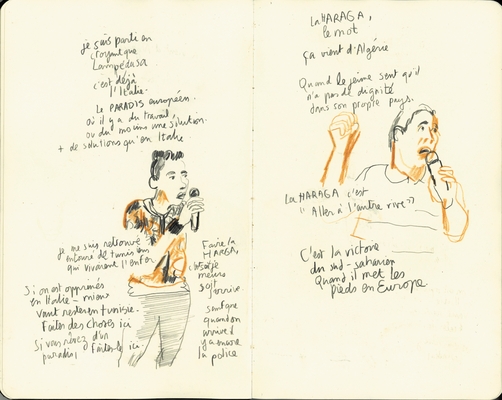 je suis parti en
croyant que
Lampedusa
c'est déjà
l'Italie.
Le PARADIS européen.
où il y a du travail
ou du moins une solution.
+ de solutions qu'en Italie.
Je me suis retrouvé
entouré de tunisiens
qui vivaient l'enfer
Si on est opprimés
en Italie - mieux
vaut rester en tunisie.
Faites des choses ici
Si vous rêvez d'un
paradis, faites-le ici.
Faire la
HARGA
c'est je
meurs
soit
j'arrive
sauf que
quand on
arrive il
y a encore
la police
La HARAGA,
le mot
ça vient d'Algérie
Quand le jeune sent qu'il
n'a pas de dignité
dans son propre pays.
La HARAGA c'est
"Aller à l'autre rive"
C'est la victoire
du sud-saharien
Quand il met les
pieds en Europe